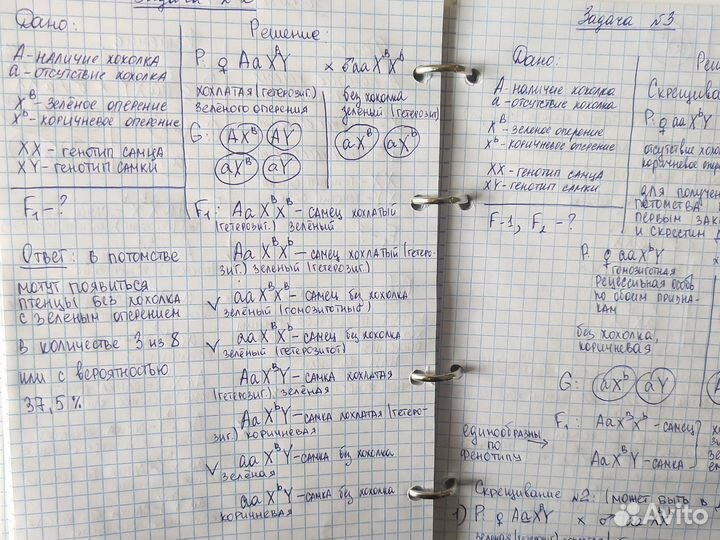 Задача №2
Дано:
А - наличие хохолка
а - отсутствие хохолка
Xᴮ - зелёное оперение
Xᵇ - коричневое оперение
XX - генотип самца
XY - генотип самки
F₁ - ?
Ответ: в потомстве
могут появиться
птенцы без хохолка
с зеленым оперением
в количестве 3 из 8
или с вероятностью
37,5%
Решение:
P: ♀ AaXᴮY × ♂ aaXᴮXᵇ
хохлатая (гетерозиг.)
зелёного оперения
без хохолка
зелёный (гетерозиг.)
G: AXᴮ AY aXᴮ aXᵇ
aXᴮ aY
F₁: AaXᴮXᴮ - самец хохлатый
(гетерозиг.) зелёный
AaXᴮXᵇ - самец хохлатый (гетеро-
зиг.) зеленый (гетерозиг.)
✓ aaXᴮXᴮ - самец без хохолка
зелёный (гомозиготный)
✓ aaXᴮXᵇ - самец без хохолка
зелёный (гетерозигот)
AaXᴮY - самка хохлатая
(гетерозиг.) зелёная
AaXᵇY - самка хохлатая (гетеро-
зиг.) коричневая
✓ aaXᴮY - самка без хохолка
зелёная
aaXᵇY - самка без хохолка
коричневая
Задача №3
Дано:
А - наличие хохолка
а - отсутствие хохолка
Xᴮ - зеленое оперение
Xᵇ - коричневое оперение
XX - генотип самца
XY - генотип самки
F-1, F₂ - ?
Скрещивание
P: ♀ aaXᵇY
отсутствие хохо
коричневое опер
для получен
потомства
первым зак
и скрестим
P: ♀ aaXᵇY
гомозиготная
рецессивная особь
по обоим призна-
кам
без хохолка,
коричневая
G: aXᵇ aY
единообразны
по
фенотипу
F₁: AaXᴮXᵇ - самец
AaXᴮY - самка
Скрещивание №2: (может быть в
1) P: ♀ AaXᴮY × ♂
Avito